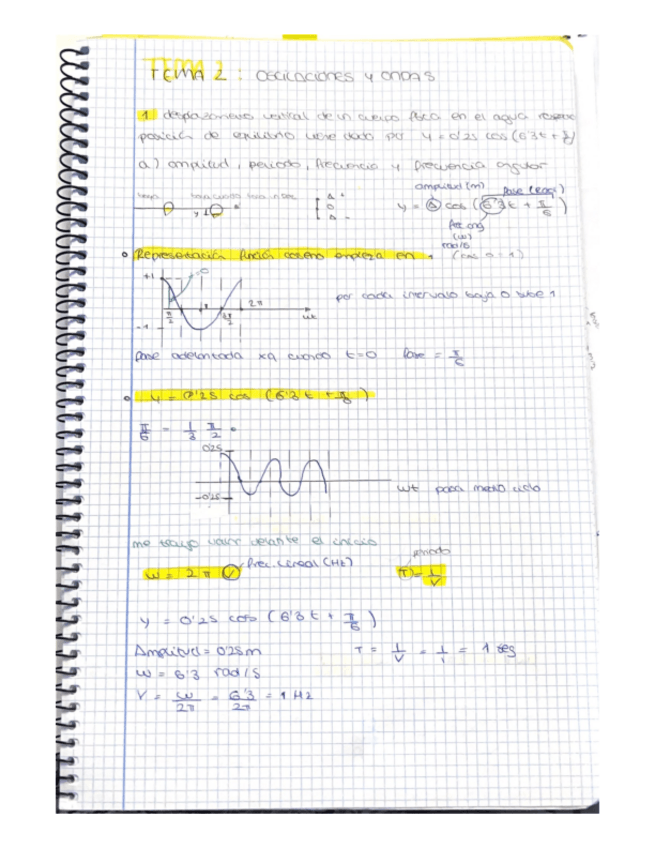 TEMA 2 : OSCILACIONES Y ONDAS
1 desplazamiento vertical de un cuerpo en el agua
posición de equilibrio viene dado por y = 0'25 cos (6'3t + π/6)
a) amplitud, periodo, frecuencia y frecuencia angular
amplitud (m) fase (rad)
y = A cos (6'3t + π/6)
A +
0
A -
frec ang
(ω)
rad/s
Representación función coseno empieza en 1 (cos 0 = 1)
+1 t=0
π/2 π 3π/2 2π
ωt
-1
por cada intervalo baja o sube 1
fase adelantada xq cuando t=0 fase = π/6
y = 0'25 cos (6'3t + π/6)
π/6 = 1/3 π/2
0'25
-0'25
ωt para medio ciclo
me traigo valor delante el inicio
ω = 2π ν frec. lineal (Hz) periodo
T = 1/ν
y = 0'25 cos (6'3t + π/6)
Amplitud = 0'25m T = 1/ν = 1/1 = 1 seg
ω = 6'3 rad/s
ν = ω/2π = 6'3/2π = 1 Hz